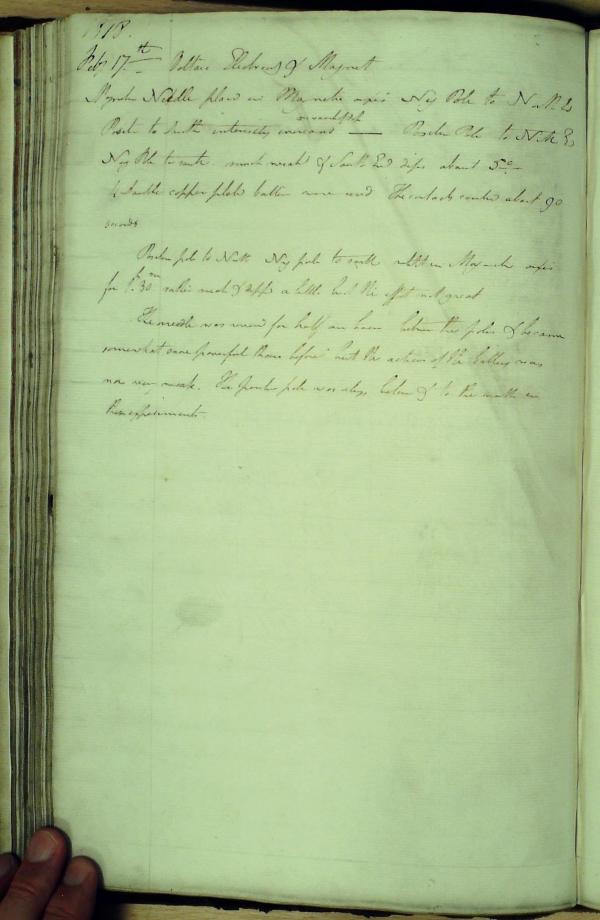 1818.
Feb 17th Voltaic Electricity & Magnet
Needle placed in Magnetic axis Neg Pole to North &
Positive to South intensity Positive Pole to North &
Neg Pole to south. much weaker & South End dips about 5°
4 double copper plate batteries were used The contacts continued about 90
seconds
Positive pole to North Neg pole to south in Magnetic axis
for 1h 30m rather weak & dipped a little but the effect not great
The needle was for half an hour between the poles & became
somewhat more powerful than before but the action of the battery was
now very weak. The pole was always below & to the north in
these experiments.